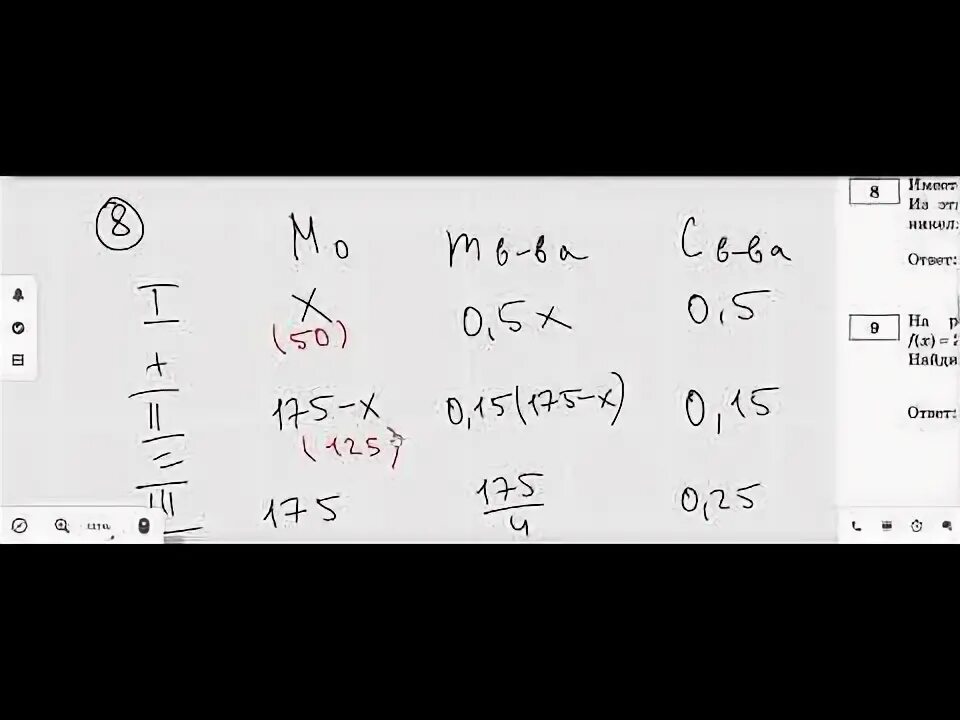 8
M₀ m в-ва C в-ва
I x 0,5x 0,5
(50)
+
II 175-x 0,15(175-x) 0,15
(125)
=
III 175 175/4 0,25
8 Имеет
Из эт
никел
Ответ:
9 На р
f(x) = 2
Найди
Ответ: